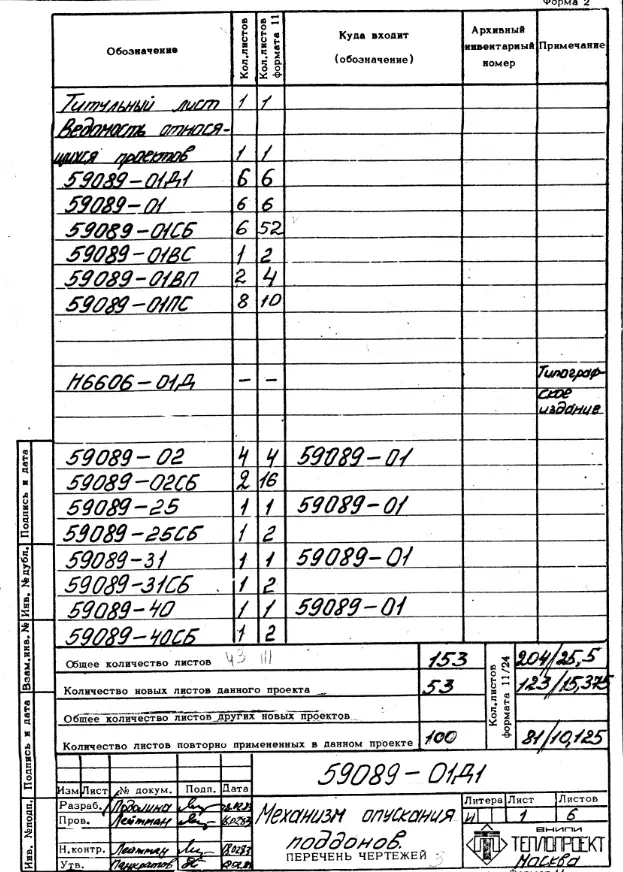 Форма 2
Обозначение Кол.листов Кол.листов формата 11 Куда входит (обозначение) Архивный инвентарный номер Примечание
Титульный лист 1 1
Ведомость относя-
щихся проектов 1 1
59089-01Д1 6 6
59089-01 6 6
59089-01СБ 6 52
59089-01ВС 1 2
59089-01ВП 2 4
59089-01ПС 8 10
Н6606-01Д - - Типограф-
ское
издание
59089-02 4 4 59089-01
59089-02СБ 2 16
59089-25 1 1 59089-01
59089-25СБ 1 2
59089-31 1 1 59089-01
59089-31СБ 1 2
59089-40 1 1 59089-01
59089-40СБ 1 2
Подпись и дата
Инв. №дубл.
Взам.инв.№
Подпись и дата
Инв. №подл.
Общее количество листов 43 111 153 204/25,5
Количество новых листов данного проекта 53 123/15,375
Общее количество листов других новых проектов
Количество листов повторно примененных в данном проекте 100 81/10,125
Кол.листов формата 11/24
59089-01Д1
Изм Лист № докум. Подп. Дата
Разраб.
Пров. Лейтман
Н.контр. Лейтман
Утв. Панкратов
Механизм опускания
поддонов.
ПЕРЕЧЕНЬ ЧЕРТЕЖЕЙ 3
Литера Лист Листов
И 1 6
ВНИПИ
ТЕПЛОПРОЕКТ
Москва